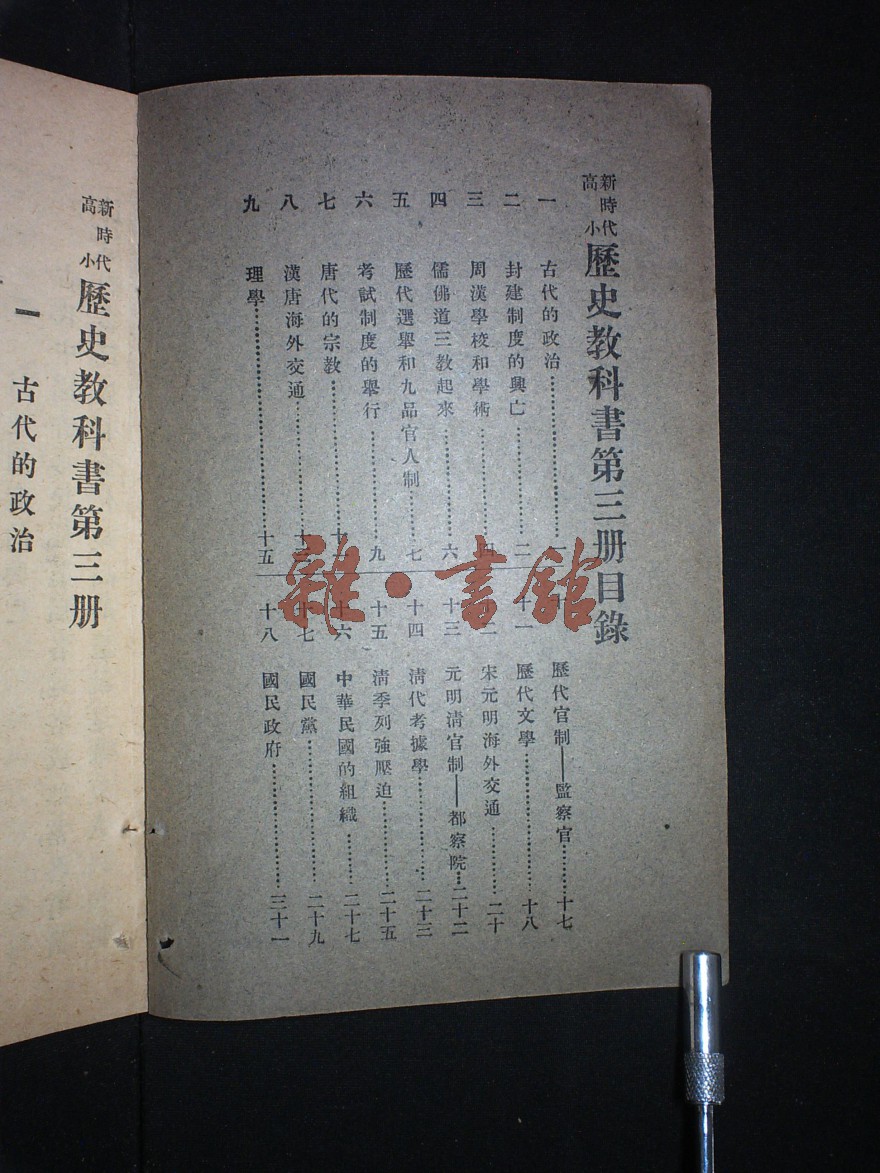 新時代高小歷史教科書第三册目錄
一 古代的政治 一
二 封建制度的興亡 二
三 周漢學校和學術 四
四 儒佛道三教起來 六
五 歷代選舉和九品官人制 七
六 考試制度的舉行 九
七 唐代的宗教
八 漢唐海外交通
九 理學 十五
十 歷代官制——監察官 十七
十一 歷代文學 十八
十二 宋元明海外交通 二十
十三 元明清官制——都察院 二十二
十四 清代考據學 二十三
十五 清季列強壓迫 二十五
十六 中華民國的組織 二十七
十七 國民黨 二十九
十八 國民政府 三十一
新時代高小歷史教科書第三册
一 古代的政治
雜·書館